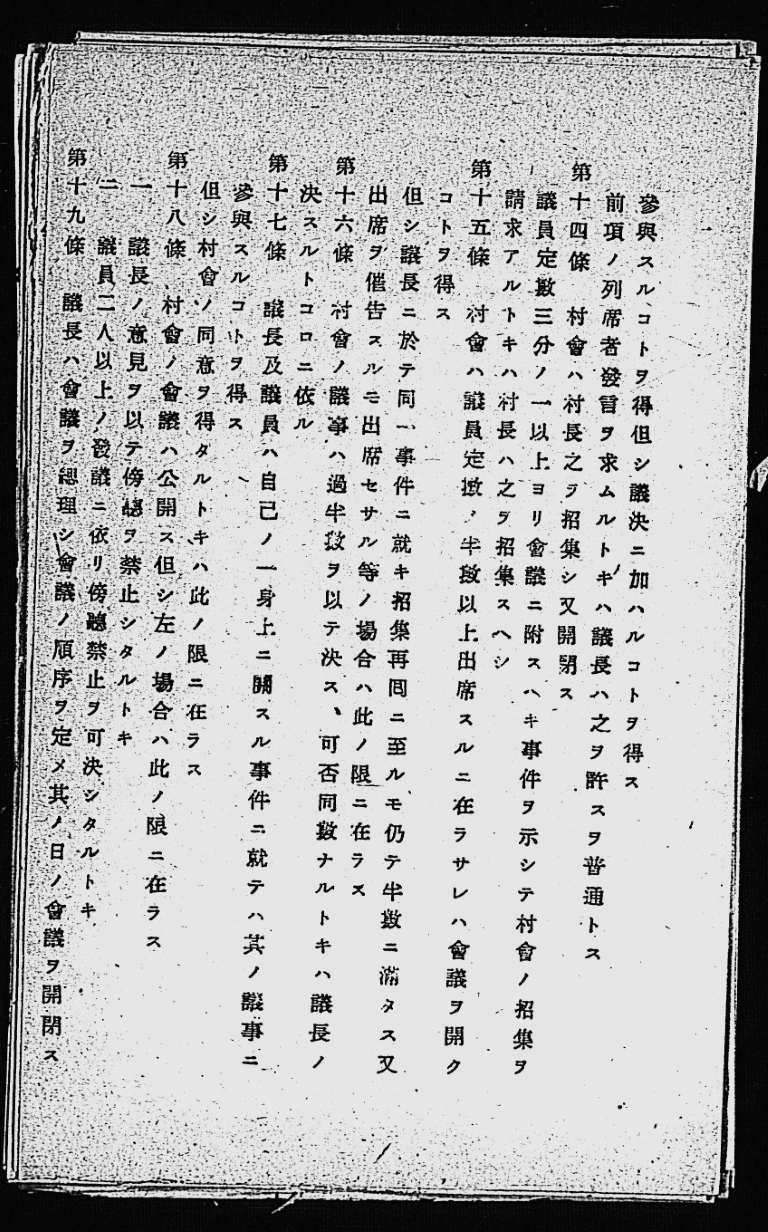 參與スルコトヲ得但シ議決ニ加ハルコトヲ得ス
前項ノ列席者發言ヲ求ムルトキハ議長ハ之ヲ許スヲ普通トス
第十四條　村會ハ村長之ヲ招集シ又開閉ス
議員定數三分ノ一以上ヨリ會議ニ附スヘキ事件ヲ示シテ村會ノ招集ヲ
請求アルトキハ村長ハ之ヲ招集スヘシ
第十五條　村會ハ議員定數ノ半數以上出席スルニ在ラサレハ會議ヲ開ク
コトヲ得ス
但シ議長ニ於テ同一事件ニ就キ招集再回ニ至ルモ仍テ半數ニ滿タス又
出席ヲ催告スルモ出席セサル等ノ場合ハ此ノ限ニ在ラス
第十六條　村會ノ議事ハ過半數ヲ以テ決ス、可否同數ナルトキハ議長ノ
決スルトコロニ依ル
第十七條　議長及議員ハ自己ノ一身上ニ關スル事件ニ就テハ其ノ議事ニ
參與スルコトヲ得ス
但シ村會ノ同意ヲ得タルトキハ此ノ限ニ在ラス
第十八條　村會ノ會議ハ公開ス但シ左ノ場合ハ此ノ限ニ在ラス
一　議長ノ意見ヲ以テ傍聽ヲ禁止シタルトキ
二　議員二人以上ノ發議ニ依リ傍聽禁止ヲ可決シタルトキ
第十九條　議長ハ會議ヲ總理シ會議ノ順序ヲ定メ其ノ日ノ會議ヲ開閉ス